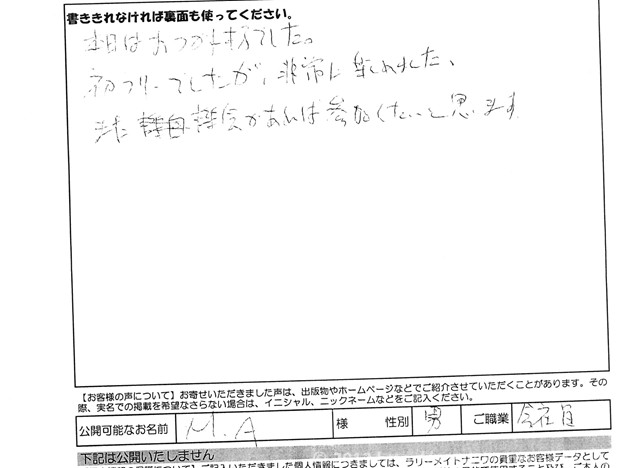 書ききれなければ裏面も使ってください。
本日はおつかれ様でした。
初フリーでしたが、非常に楽しめました、
また 機会があれば参加したいと思います
【お客様の声について】お寄せいただきました声は、出版物やホームページなどでご紹介させていただくことがあります。その
際、実名での掲載を希望なさらない場合は、イニシャル、ニックネームなどをご記入ください。
公開可能なお名前 M.A 様 性別 男 ご職業 会社員
下記は公開いたしません
ご記入いただきました個人情報につきましては、ラリーメイトナニワの貴重なお客様データとして